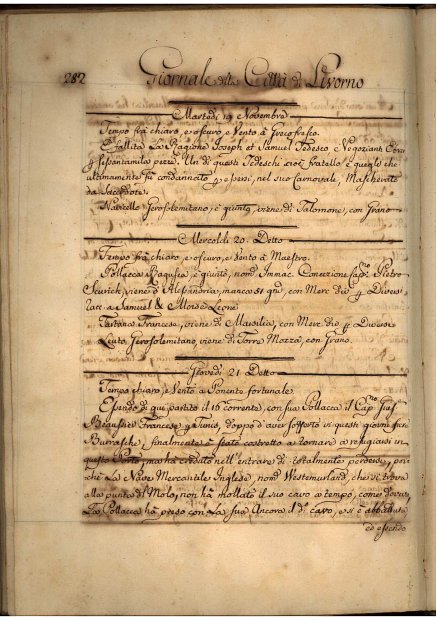 282 Giornale della Città di Livorno
Martedì 19 Novembre
Tempo frà chiaro, e oscuro, e Vento à Greco fresco.
È fallita La Ragione Joseph et Samuel Tedesco e Negozianti
p sessantamila pezze. Un di questi Tedeschi cioè fratello è quello che
ultimamente fù condannato p essersi, nel suo Carnovale, Mascherato
da Sacerdote.
Navicello Gerosolemitano, è giunto, viene di Talamone, con Grano
Mercoldi 20. Detto
Tempo frà chiaro, e oscuro, e Vento à Maestro.
Pollacca Ragusea è giunta, nom. Immac. Concezione, Cap.no Pietro
viene d'Alessandria, manca 51 gno, con Merc. die p Diversi
racc. a Samuel & Moisè Leone
Tartana Francese, viene di Marsilia, con Merc. die p Diversi
Leuto Gerosolemitano, viene di Torre Mozza, con Grano.
Giovedì 21 Detto
Tempo chiaro, e Vento à Ponente fortunale.
Essendo di qui partito il 16 corrente, con sua Pollacca il Cap.no Gius.
Beaussier Francese, p Tunis, doppo d'aver sofferto in questi giorni fieri
Burrasche, finalmente è stato costretto a tornare a refugiarsi in
questo Porto, ma hà creduto nell'entrare di totalmente perdersi, poi
chè La Nave Mercantile Inglese, nom. Westmurland, che si trova
alla punta di Molo, non hà mollato il suo cavo a tempo, come doveva,
La Pollacca hà preso con La sua Ancora il d.o cavo, e si è abbattuta
ed essendo